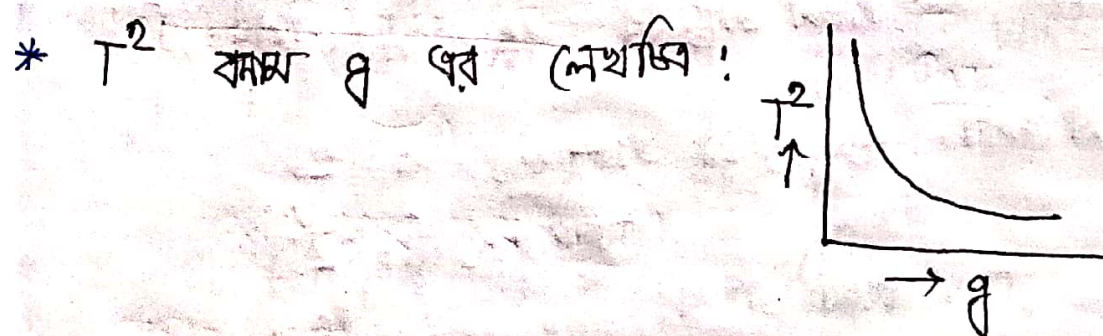 * T² বনাম g এর লেখচিত্র :
T²
↑
→ g